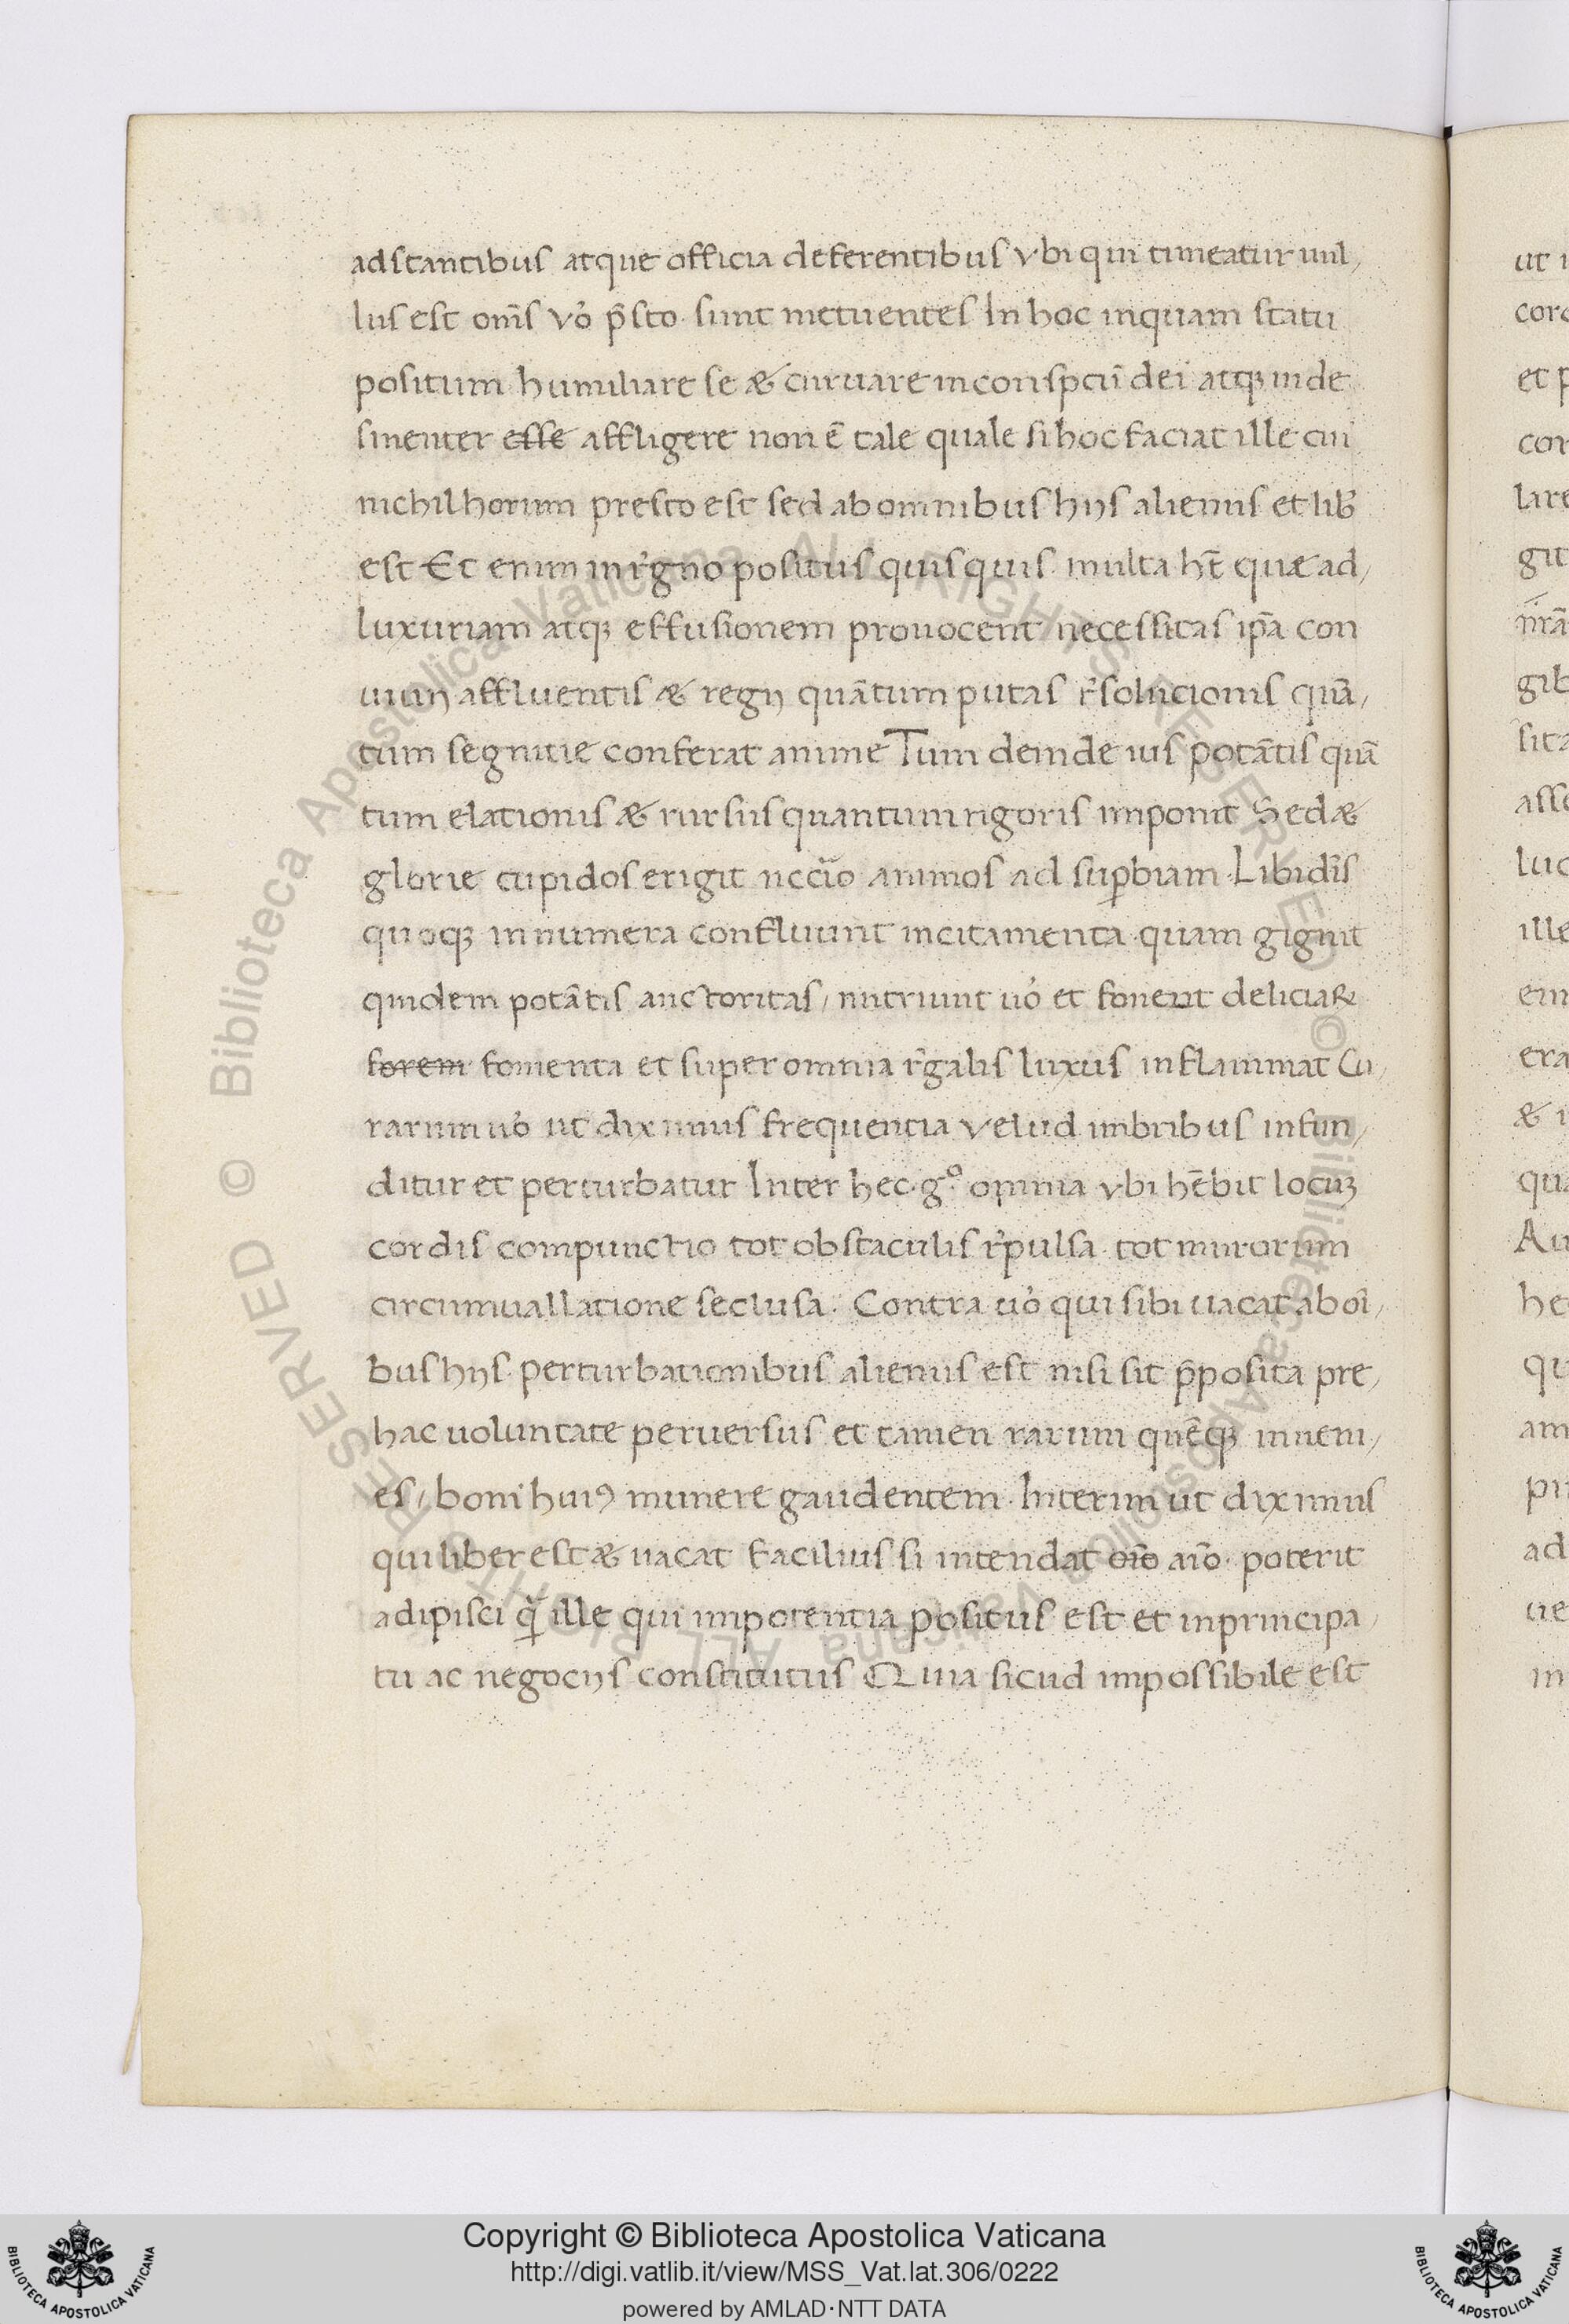 adstantibus atque officia deferentibus vbi qui timeatur nul,
lus est om̄s vo᷒ p̄sto · sunt metuentes In hoc inquam statu
positum humiliare se & curuare in conspc̄u dei atqꝫ inde
sinenter esse affligere non ē tale quale si hoc faciat ille cui
nichil horum presto est sed ab omnibus hijs alienus et lib̄
est Et enim in r̄gno positus quisquis · multa hēt quæ ad,
luxuriam atqꝫ effusionem prouocent necessitas ip̄a con
uiuij affluentis & regij quātum putas r̄solucionis quā,
tum segnitie conferat anime Tum deinde ius potātis quā
tum elationis & rursus quantum rigoris imponit Sed &
glorie cupidos erigit nec̄uo animos ad suꝑbiam · Libidīs
quoqꝫ innumera confluunt incitamenta · quam gignit
quidem potātis auctoritas, nutriunt uo᷒ et fouent deliciaꝝ
forem fomenta et super omnia r̄galis luxus inflammat Cu,
rarum uo᷒ ut diximus frequentia velud imbribus infun,
ditur et perturbatur Inter hec · gº · omnia vbi hēbit locuꝫ
cordis compunctio tot obstaculis r̄pulsa · tot murorum
circumuallatione seclusa · Contra uo᷒ qui sibi uacat ab oī,
bus hijs · perturbationibus alienus est nisi sit p̄posita pre,
hac uoluntate peruersus et tamen rarum quēqꝫ inueni,
es, boni huiꝰ munere gaudentem · Interim ut diximus
qui liber est & uacat facilius si intendat oīo aīo · poterit
adipisci ꝙ̄ ille qui inpotentia positus est et inprincipa,
tu ac negocijs constitutus Quia sicud impossibile est
ut
et
gib
ille
& i
qua
Au
he
qu
am
ad
ue
in
Copyright © Biblioteca Apostolica Vaticana
http://digi.vatlib.it/view/MSS_Vat.lat.306/0222
powered by AMLAD·NTT DATA
BIBLIOTECA APOSTOLICA VATICANA
BIBLIOTECA APOSTOLICA VATICANA